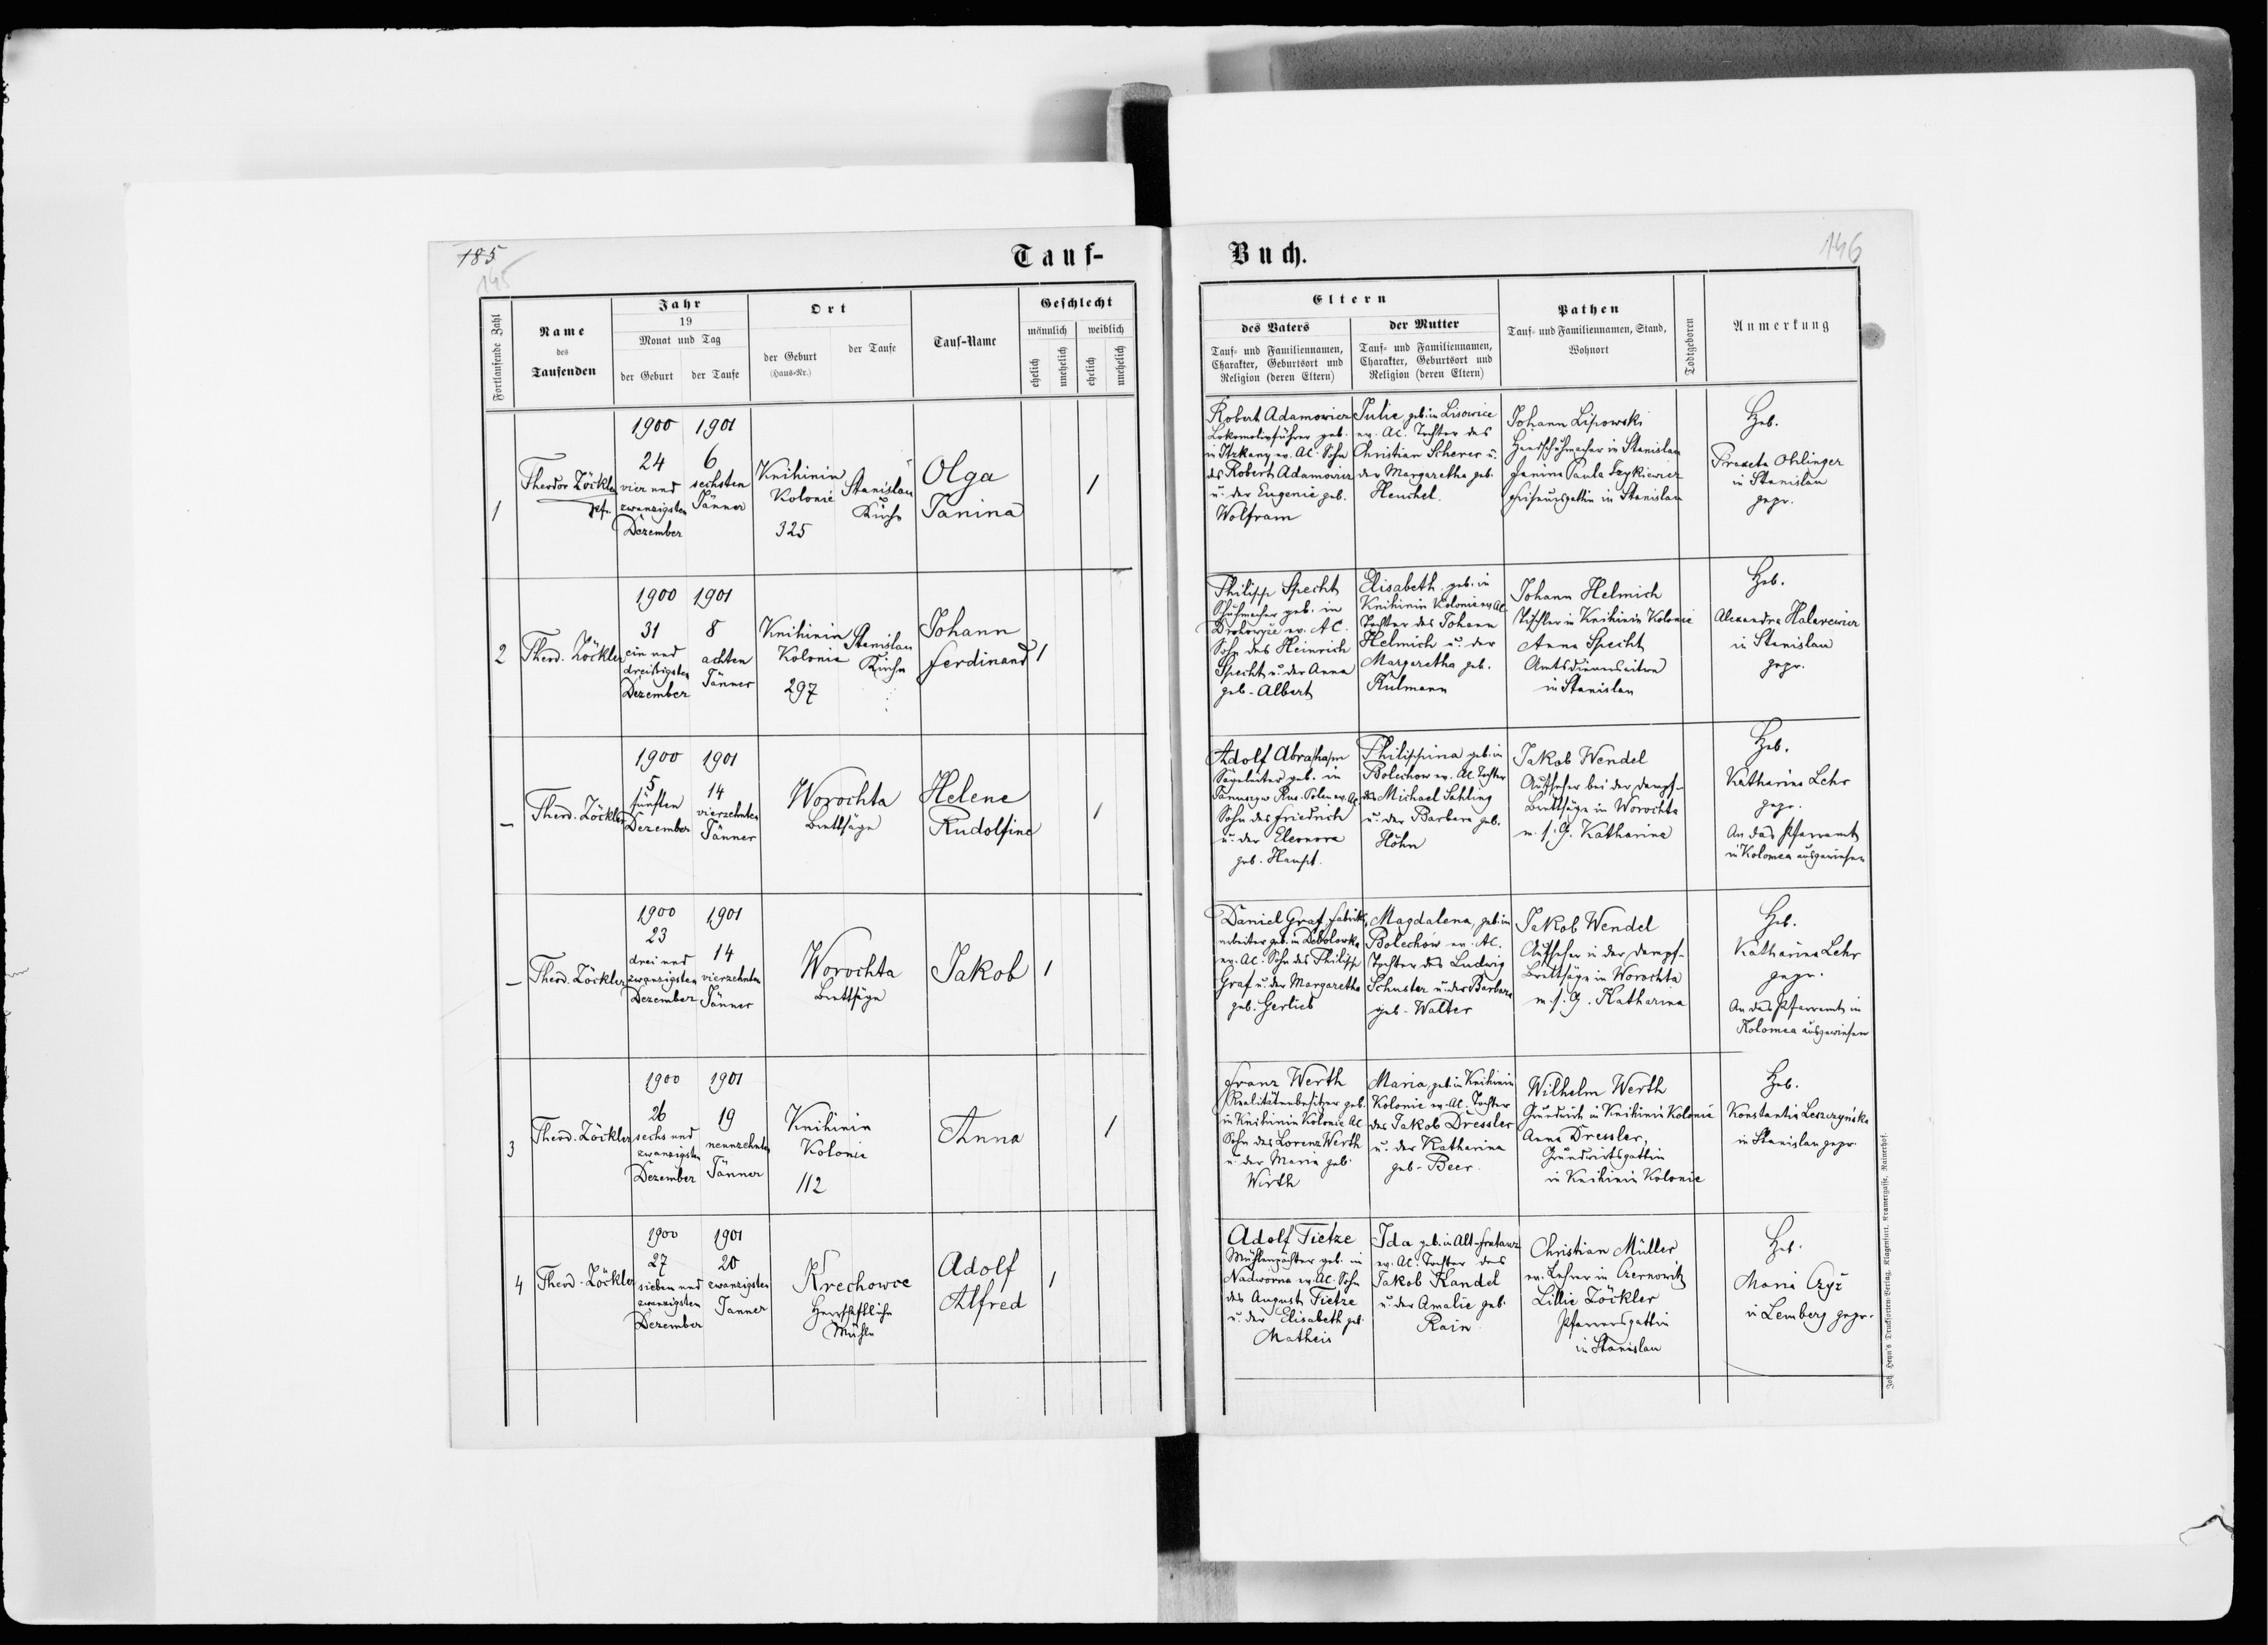 185
145
Tauf-
Fortlaufende Zahl
Name
des
Taufenden
Jahr
19
Monat und Tag
der Geburt
der Taufe
Ort
der Geburt
(Haus-Nr.)
der Taufe
Tauf-Name
Geschlecht
männlich
weiblich
ehelich
unehelich
ehelich
unehelich
1
Theodor Zöckler
Pf.
1900
24
vier und
zwanzigsten
Dezember
1901
6
sechsten
Jänner
Knihinin
Kolonie
325
Stanislau
Kirche
Olga
Janina
1
2
Theod. Zöckler
1900
31
ein und
dreißigsten
Dezember
1901
8
achten
Jänner
Knihinin
Kolonie
297
Stanislau
Kirche
Johann
Ferdinand
1
–
Theod. Zöckler
1900
5
fünften
Dezember
1901
14
vierzehnten
Jänner
Worochta
Brettsäge
Helene
Rudolfine
1
–
Theod. Zöckler
1900
23
drei und
zwanzigsten
Dezember
1901
14
vierzehnten
Jänner
Worochta
Brettsäge
Jakob
1
3
Theod. Zöckler
1900
26
sechs und
zwanzigsten
Dezember
1901
19
neunzehnten
Jänner
Knihinin
Kolonie
112
Anna
1
4
Theod. Zöckler
1900
27
sieben und
zwanzigsten
Dezember
1901
20
zwanzigsten
Janner
Krechowce
Herrschaftliche
Mühle
Adolf
Alfred
1
Buch.
146
Eltern
des Vaters
Tauf- und Familiennamen,
Charakter, Geburtsort und
Religion (deren Eltern)
der Mutter
Tauf- und Familiennamen,
Charakter, Geburtsort und
Religion (deren Eltern)
Pathen
Tauf- und Familiennamen, Stand,
Wohnort
Todtgeboren
Anmerkung
Robert Adamowicz
Lokomotivführer geb.
ev. AC. Sohn
des Robert Adamowicz
u. der Eugenie geb.
Wolfram
Julie geb. in Lisowice
ev. AC. Tochter des
Christian Scherer u.
der Margaretha geb.
Henchel.
Johann Lipowski
Handschuhmacher in Stanislau
Janina Paula
Friseursgattin in Stanislau
Heb.
Praxeta Ohlinger
in Stanislau
gepr.
Philipp Specht
Schuhmacher geb. in
ev. AC.
Sohn des Heinrich
Specht u. der Anna
geb. Albert
Elisabeth geb. in
Knihinin Kolonie ev. AC.
Tochter des Johann
Helmich u. der
Margaretha geb.
Kulmann
Johann Helmich
Tischler in Knihinin Kolonie
Anna Specht
in Stanislau
Heb.
Alexandra
in Stanislau
gepr.
Adolf Abraham
Sägeleiter geb. in
Rus. Polen ev. AC
Sohn des Friedrich
u. der Eleonora
geb. Haupt.
Philippina geb. in
Bolechow ev. AC. Tochter
des Michael Sahling
u. der Barbara geb.
Höhn
Jakob Wendel
Aufseher bei der Dampf-
Brettsäge in Worochta
m. s. G. Katharina
Heb.
Katharina Lehr
gepr.
An das Pfarramt
in Kolomea ausgewiesen
Daniel Graf, Fabriks-
arbeiter geb. in Debolowka
ev. AC. Sohn des Philipp
Graf u. der Margaretha
geb. Gerlieb
Magdalena, geb. in
Bolechów ev. AC.
Tochter des Ludwig
Schuster u. der Barbara
geb. Walter
Jakob Wendel
Aufseher in der Dampf-
Brettsäge in Worochta
m. s. G. Katharina
Heb.
Katharina Lehr
gepr.
An das Pfarramt in
Kolomea ausgewiesen
Franz Werth
Realitätenbesitzer geb.
in Knihinin Kolonie AC
Sohn des Lorenz Werth
u. der Maria geb.
Wirth
Maria, geb. in Knihinin
Kolonie ev. AC. Tochter
des Jakob Dressler
u. der Katharina
geb. Beer.
Wilhelm Werth
Grundwirth in Knihinin Kolonie
Anna Dressler,
Grundwirtsgattin
in Knihinin Kolonie
Heb.
Konstantia Leszczyńska
in Stanislau gepr.
Adolf Tietze
Mühlenpächter geb. in
Nadworna ev. AC. Sohn
des August Tietze
u. der Elisabeth geb.
Matheis
Ida geb. in Alt-Fratautz
ev. AC. Tochter des
Jakob Kandel
u. der Amalie geb.
Rain.
Christian Müller
ev. Lehrer in Czernowitz
Lillie Zöckler
Pfarrersgattin
in Stanislau
Heb.
Maria Czyż
in Lemberg gepr.
Joh. Heyn's Druckorten-Verlag, Klagenfurt, Kramergasse, Rainerhof.